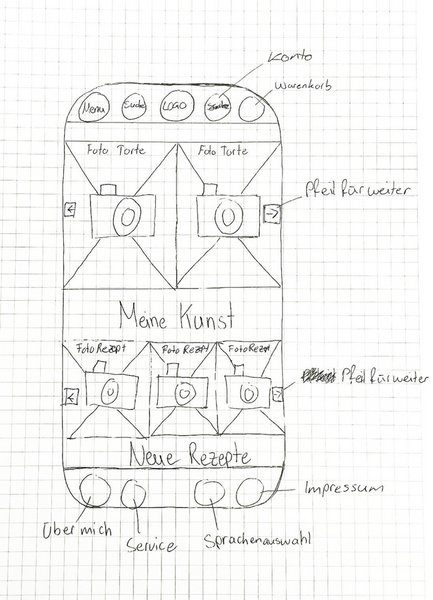 Konto
Warenkorb
Menü
Suche
LOGO
Foto Torte
Foto Torte
Pfeil für weiter
Meine Kunst
Foto Rezept
Foto Rezept
Foto Rezept
Pfeil für weiter
Neue Rezepte
Impressum
Über mich
Service
Sprachenauswahl